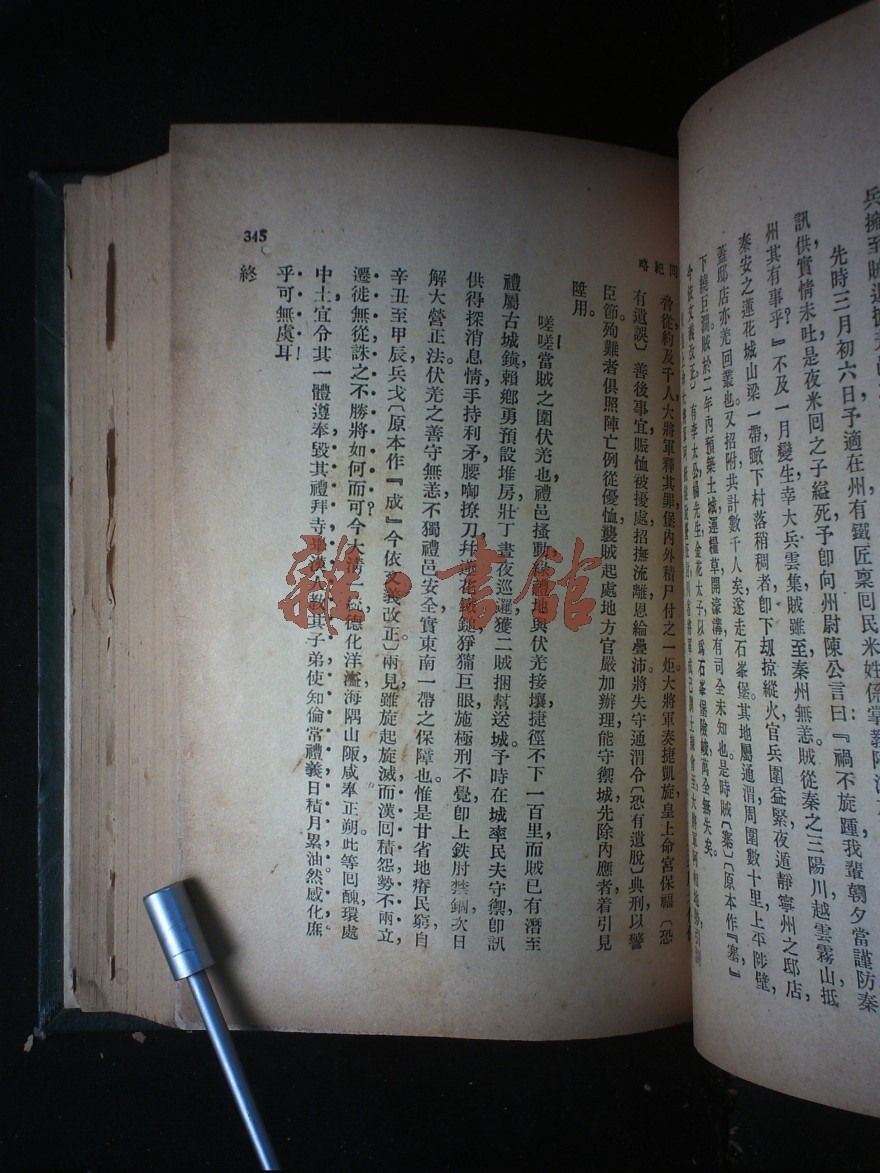 兵擁至
先時三月初六日予適在州有鐵匠稟回民米姓係掌教
訊供實情未吐是夜米回之子縊死予卽向州尉陳公言曰：『禍不旋踵我輩朝夕當謹防秦
州其有事乎？』不及一月變生幸大兵雲集賊雖至秦州無恙賊從秦之三陽川越雲霧山抵
秦安之蓮花城山梁一帶瞰下村落稍稠者卽下刼掠縱火官兵圍益緊夜遁靜寧州之邸店，
蓋邸店亦光回叢也又招附共計數千人矣遂走石峯堡其地屬通渭周圍數十里上平陟壁，
下積巨澗賊於二年內預築土城運糧草開濠溝有司全未知也是時賊〔寨〕〔原本作『塞』
今依文義改正〕有李太公楊先生金花太子以爲石峯堡險峻萬全無失矣。
紀略
脅從約及千人大將軍釋其罪堡內外積尸付之一炬大將軍奏捷凱旋皇上命宮保福〔恐
有遺誤〕善後事宜賑恤被擾處招撫流離恩綸疊沛將失守通渭令〔恐有遺脫〕典刑以警
臣節殉難者俱照陣亡例從優恤襲賊起處地方官嚴加辦理能守禦城先除內應者着引見
陞用。
嗟嗟當賊之圍伏羌也，禮邑搔動，緣禮地與伏羌接壤捷徑不下一百里而賊已有潛至
禮屬古城鎭賴鄉勇預設堆房壯丁晝夜巡邏獲二賊捆幫送城予時在城率民夫守禦卽訊
供得探消息情手持利矛腰啣撩刀幷蓮花鐵鎚猙獰巨眼施極刑不覺卽上鉄肘禁錮次日
解大營正法伏羌之善守無恙不獨禮邑安全實東南一帶之保障也惟是甘省地瘠民窮自
辛丑至甲辰兵戈〔原本作『成』今依文義改正〕兩見雖旋起旋滅而漢回積怨勢不兩立，
遷徙無從誅之不勝將如何而可？今大淸德化洋溢海隅山陬咸奉正朔此等回醜環處
中土宜令其一體遵奉毀其禮拜寺漢人教其子弟使知倫常禮義日積月累油然感化庶
乎可無虞耳！
終
345
雜·書館